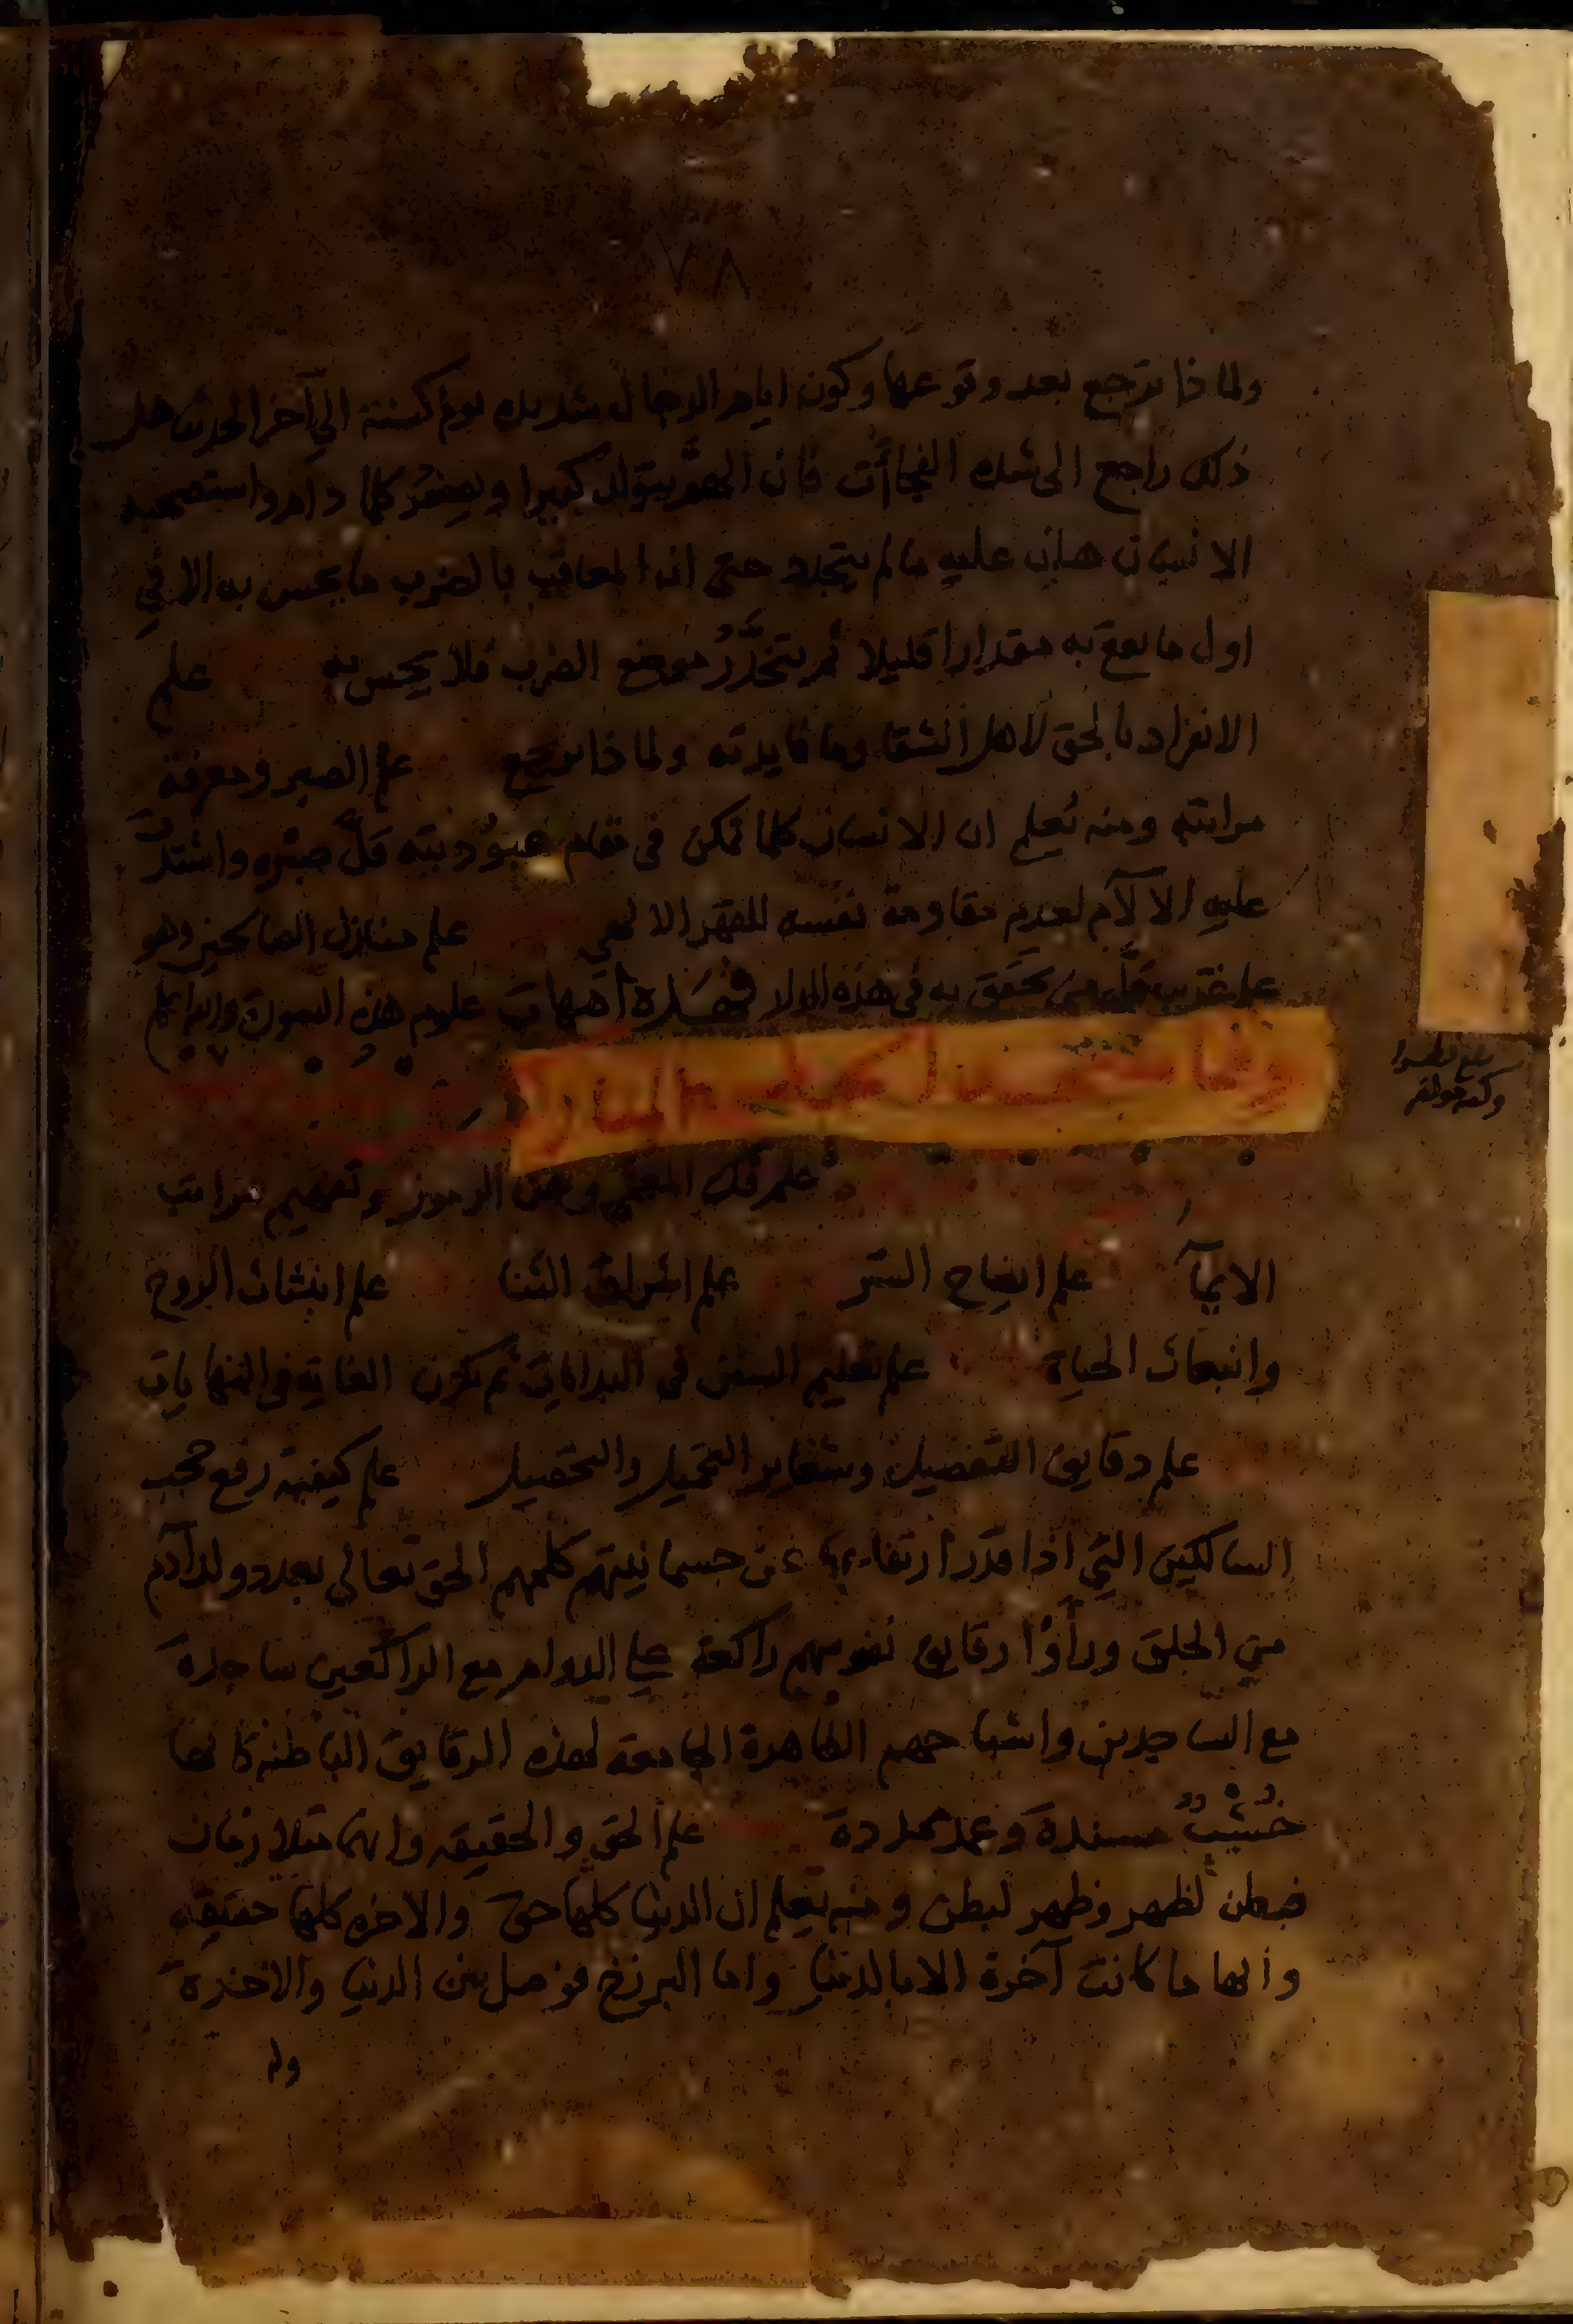 ٧٨
ولماذا ترجع بعد وقوعها وكون ايام الدجال شديدة يوم كسنة الي آخر الحديث هل
ذلك راجع الى شدة الفجاآت فان الهم يتولد كبيرا ويصغر كلما دام واستصحبه
الانسان هان عليه ما لم يتجدد حتى ان المعاقب بالضرب ما يحس به الا في
اول ما يقع به مقدارا قليلا ثم يتخدر موضع الضرب فلا يحس به علم
الانفراد بالحق لاهل الشقا وما فايدته ولماذا يرجع علم الصبر ومعرفة
مراتبه ومنه تعلم ان الانسان كلما تمكن في مقام عبوديته قل صبره واشتدت
عليه الآلام لعدم مقاومة نفسه للقهر الالهي علم منازل الصالحين وهو
علم غريب قل من تحقق به في هذه الدار فهذه امهات علوم هذه السورة والله اعلم
علم فك المعمى وحل الرموز وتفهيم مراتب
الايمآ علم ايضاح السر علم اطراف الثنا علم انبثاث الروح
وانبعاث الحياة علم تعليم السفن في البدايات ثم تكون الغاية في النهايات
علم دقايق التفصيل والتحصيل علم كيفية رفع حجب
السالكين التي اذا قدر ارتفاعها عن جسمانيتهم كلمهم الحق تعالى بعدد ولد آدم
من الخلق ورأوا رقايق نفوسهم راكعة على الدوام مع الراكعين ساجدة
مع الساجدين واشباحهم الظاهرة الجامعة لهذه الرقايق الباطنة كانها
خشب مسندة وعمد ممددة علم الحق والحقيقة وانهما متلازمان
فبطن لظهر وظهر لبطن ومنه يعلم ان الدنيا كلها حق والاخره كلها حقيقة
وانها ما كانت آخرة الا بالدنيا واما البرزخ فوصل بين الدنيا والاخرة
وله